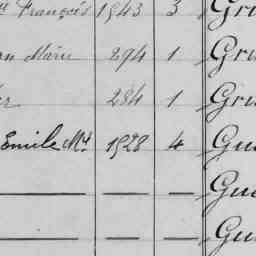 François 1943 3 Gr
an Marie 294 1 Gr
284 1 Gr
Emile Mie 1928 4 Gu
— — — Gu
— — — Gu